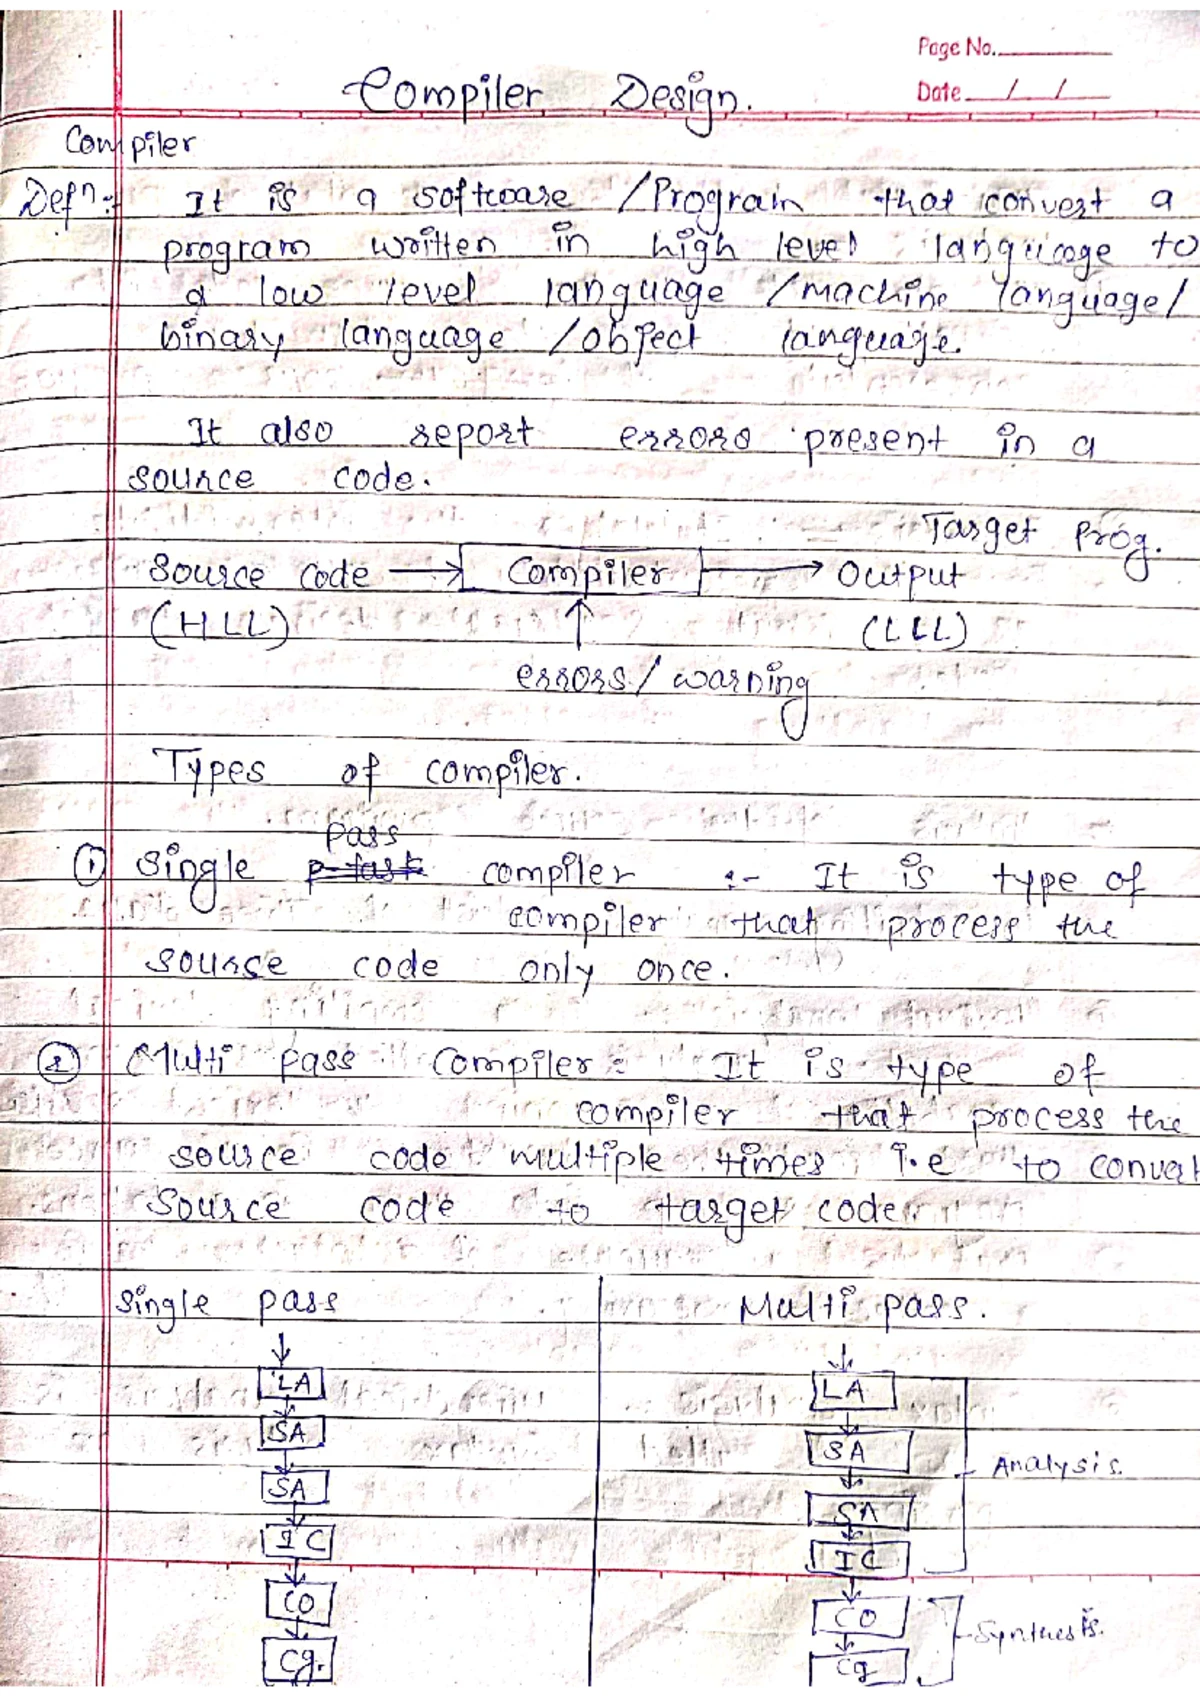 Page No.
Date / /
Compiler Design.
Compiler
Defn :- It is a software /Program that convert a
program written in high level language to
a low level language /machine language/
binary language /object language.
It also report errors present in a
source code.
Target Prog.
Source code → Compiler → Output
(HLL) (LLL)
errors / warning
Types of compiler.
Pass
① Single compiler :- It is type of
compiler that process the
source code only once.
② Multi pass compiler : It is type of
compiler that process the
source code multiple times i.e to convert
source code to target code.
Single pass
LA
SA
SA
IC
CO
Cg.
Multi pass.
LA
SA
SA
IC
Analysis.
CO
Cg
Synthesis.